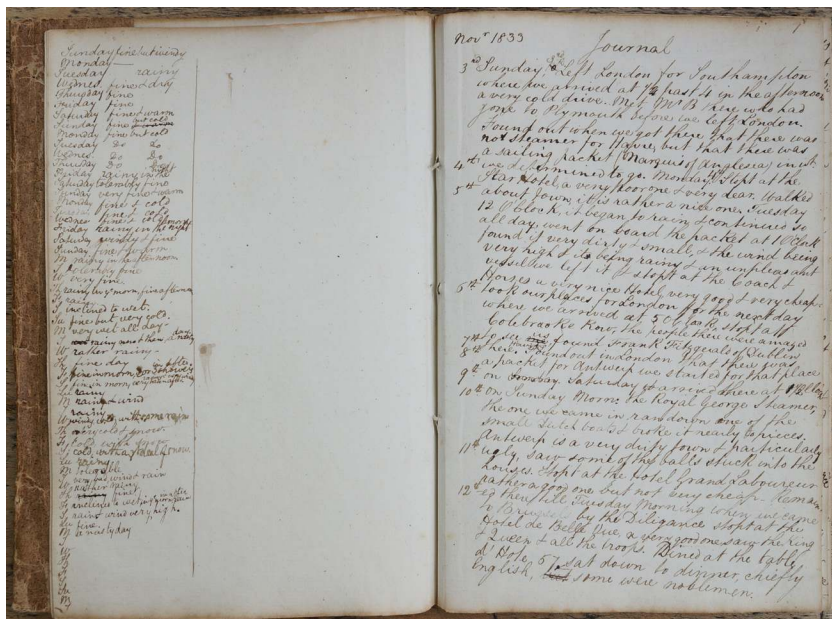 Sunday fine but windy
Monday —
Tuesday rainy
Wednes. fine & dry
Thursday fine
Friday fine
Saturday finest warm
Sunday fine but cold
Monday fine but cold
Tuesday Do Do
Wednes. Do Do
Thursday Do
Friday rainy in the night
Saturday tolerably fine
Sunday very fine & warm
Monday fine & cold
Tuesday fine & cold
Wednes fine & cold
Friday rainy in the night
Saturday windy & fine
Sunday fine
M rainy in afternoon
T tolerably fine
W very fine
Th rainy morn, fine afternoon
F rain
S inclined to wet.
Su fine but very cold.
M very wet all day
T rainy
W rather rainy
Th fine day
F fine in morn,
S fine in morn,
Su rainy
M rain & wind
T rainy
W windy
Th very cold & snow.
F cold with
S cold,
Su rainy
M tolerable,
T wind & rain
W rather rainy
Th fine
F inclined to wet
S rain & wind very high
Su fine.
M
T
W
Th
F
S
Su
M
Novr 1833 Journal
3rd Sunday, Left London for Southampton
where we arrived at ½ past 4 in the afternoon
a very cold drive. Met Mr B there who had
gone to Plymouth before we left London
Found out when we got there that there was
not steamer for Havre, but that there was
a sailing packet (Marquis of Anglesea) in wh
4th we determined to go. Monday, Stopt at the
Star Hotel, a very poor one & very dear. Walked
5th about town, it is rather a nice one. Tuesday
12 O'clock, it began to rain & continued so
all day. went on board the packet at 10 O'clk
found it very dirty & small, & the wind being
very high & its being rainy & an unpleasant
vessel we left it & stopt at the Coach &
Horses a very nice Hotel, very good & very cheap.
6th took our places for London for the next day
when we arrived at 5 O'clock, stopt at
Colebrooke Row, the people there were amazed
7th to see us, found Frank Fitzgerald of Dublin
8th there. Found out in London that there was
a packet for Antwerp we started for that place
9th on Saturday & arrived there at
10th on Sunday Morng the Royal George Steamer
the one we came in ran down one of the
small Dutch boats & broke it nearly to pieces.
Antwerp is a very dirty town & particularly
11th ugly, saw some of the balls stuck into the
houses. Stopt at the Hotel Grand Laboureur
rather a good one but not very cheap. Remain
12th ed there till Tuesday Morning when we came
to Brussels by the Diligence stopt at the
Hotel de Belle Vue, a very good one saw the King
& Queen & all the troops. Dined at the table
d'Hote, 67 sat down to dinner, chiefly
English, some were noblemen.